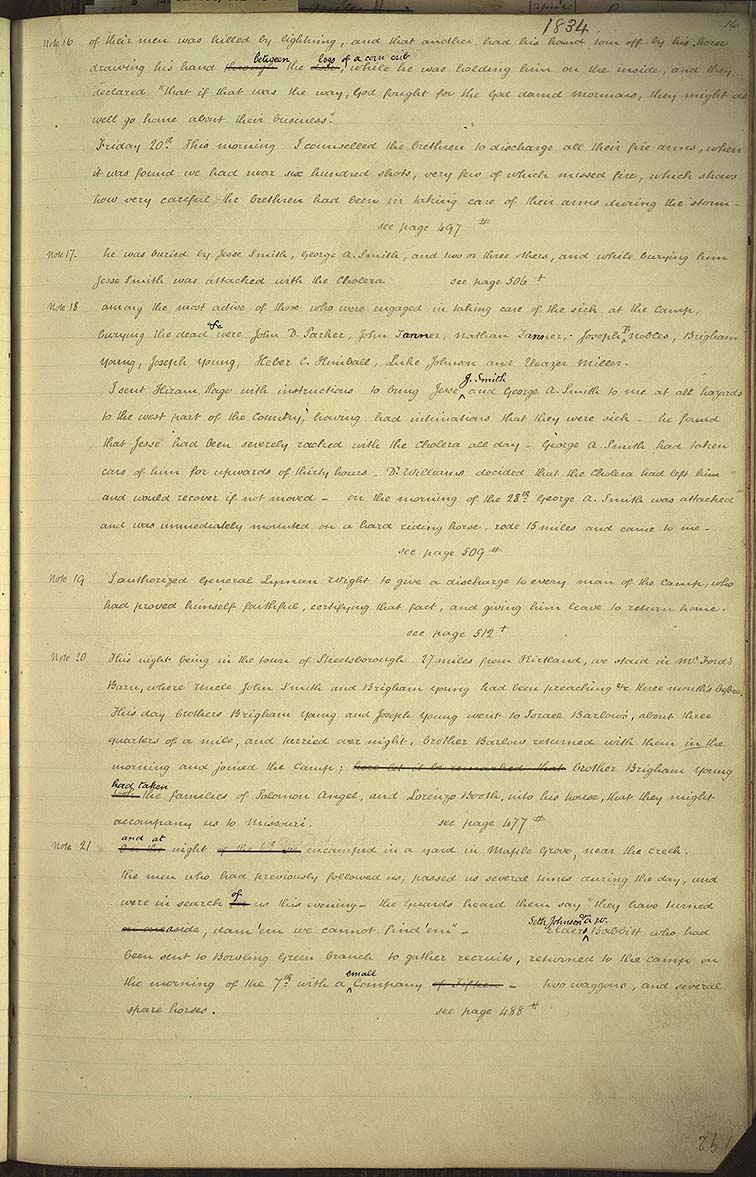 1834
16
Note 16 of their men was killed by lightning, and that another had his hand torn off by his horse
drawing his hand through between the logs of a corn crib, while he was holding him on the inside, and they
declared "that if that was the way, God fought for the God damd Mormans, they might as
well go home about their business".
Friday 20th. This morning I counselled the brethren to discharge all their fire arms, when
it was found we had near six hundred shots, very few of which missed fire, which shows
how very careful the brethren had been in taking care of their arms during the storm -
see page 497 #
Note 17. he was buried by Jesse Smith, George A. Smith, and two or three others, and while burying him
Jesse Smith was attacked with the Cholera see page 506 +
Note 18 among the most active of those who were engaged in taking care of the sick at the Camp,
burying the dead &c were John D. Parker, John Tanner, Nathan Tanner, Joseph B Nobles, Brigham
Young, Joseph Young, Heber C. Kimball, Luke Johnson and Eleazer Miller.
I sent Hiram Page with instructions to bring Jesse J. Smith and George A. Smith to me at all hazards
to the west part of the Country, having had intimations that they were sick - he found
that Jesse had been severely racked with the Cholera all day - George A. Smith had taken
care of him for upwards of thirty hours - Dr Williams decided that the Cholera had left him
and would recover if not moved - on the morning of the 28th George A. Smith was attacked
and was immediately mounted on a hard riding horse, rode 15 miles and came to me -
see page 509 #
Note 19 I authorized General Lyman Wight to give a discharge to every man of the Camp, who
had proved himself faithful, certifying that fact, and giving him leave to return home.
see page 512 +
Note 20 This night being in the town of Streetsborough 27 miles from Kirtland, we staid in Mr. Ford's
Barn, where Uncle John Smith and Brigham Young had been preaching &c three months before.
This day brothers Brigham Young and Joseph Young went to Israel Barlow's, about three
quarters of a mile, and tarried over night, brother Barlow returned with them in the
morning and joined the Camp; here let it be remarked that brother Brigham Young
took had taken the families of Solomon Angel, and Lorenzo Booth, into his house, that they might
accompany us to Missouri. see page 477 #
Note 21 On the and at night of the 6th we encamped in a yard in Maple Grove, near the creek.
the men who had previously followed us, passed us several times during the day, and
were in search for of us this evening - the guards heard them say "they have turned
on one aside, dam 'em we cannot find 'em" - Elders Seth Johnson & A. W. Babbitt who had
been sent to Bowling Green branch to gather recruits, returned to the camp on
the morning of the 7th with a small Company of Fifteen - two waggons, and several
spare horses. see page 488 #